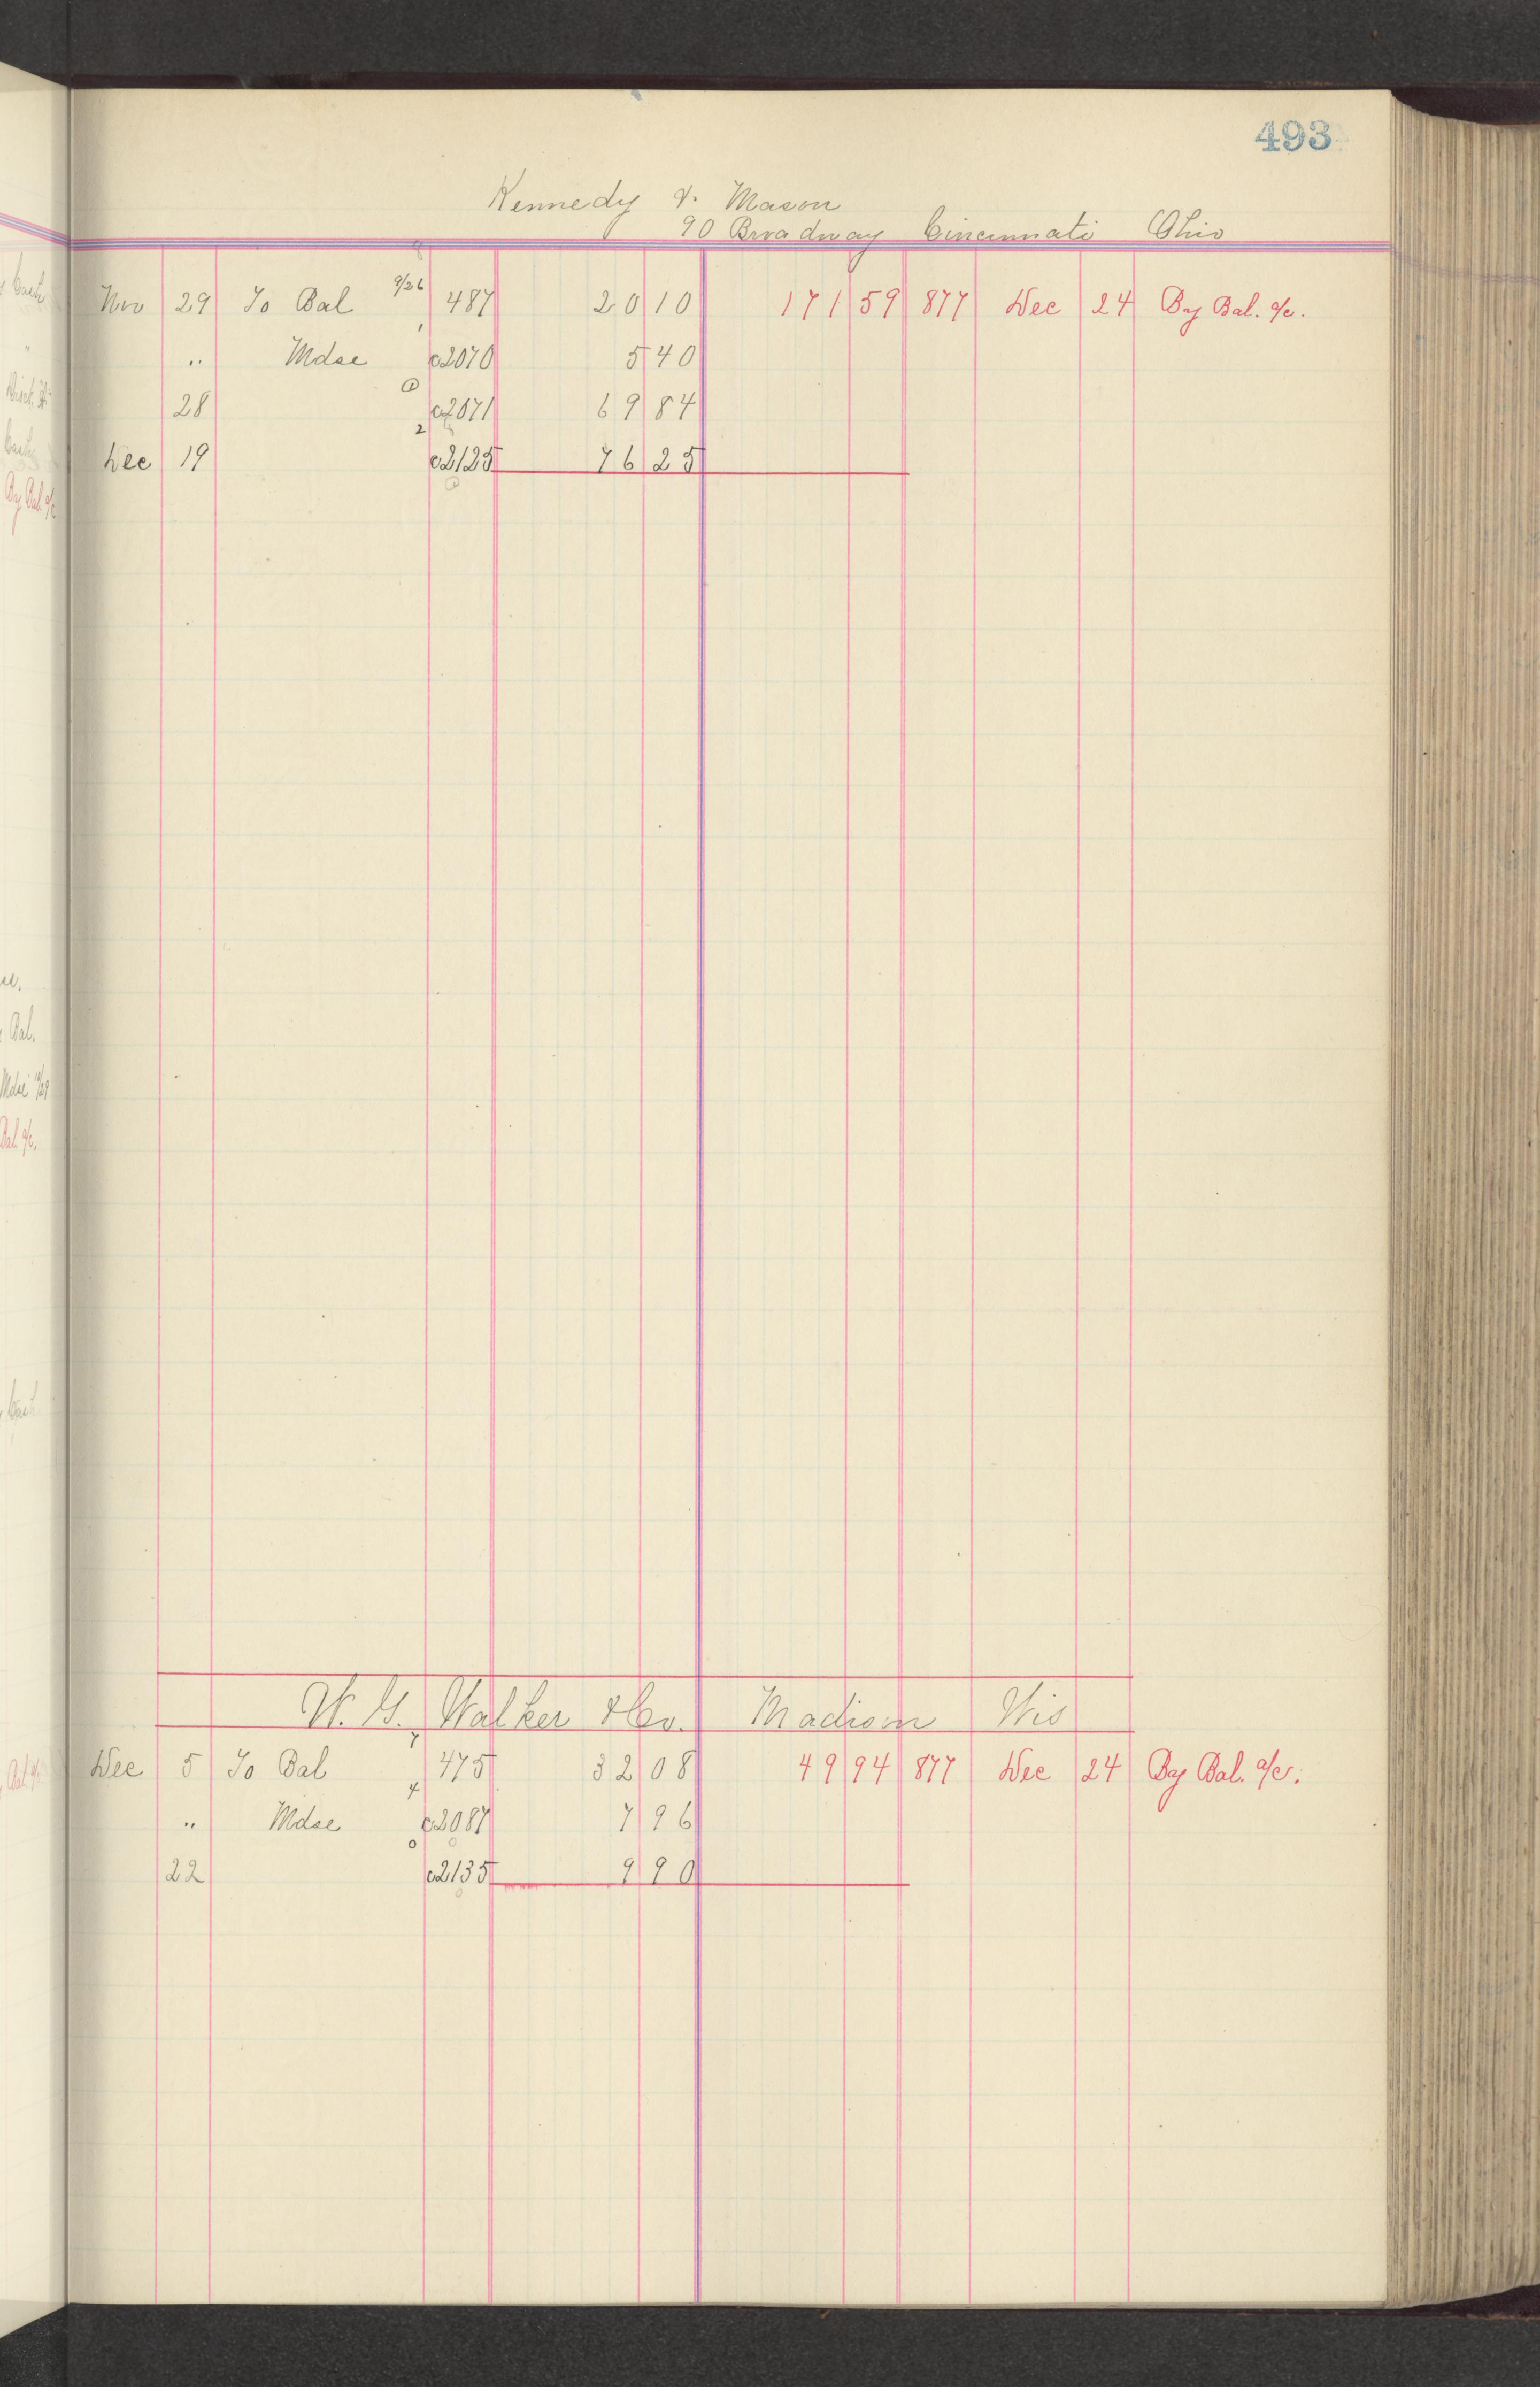 493
Kennedy & Mason
90 Broadway Cincinnati Ohio
Nov 29 To Bal 9/26 487 20 10 171 59 877 Dec 24 By Bal. a/c.
" Mdse c2070 5 40
28 c2071 69 84
Dec 19 c2125 76 25
W. G. Walker & Co. Madison Wis
Dec 5 To Bal 475 32 08 49 94 877 Dec 24 By Bal. a/c.
" Mdse c2087 7 96
22 c2135 9 90